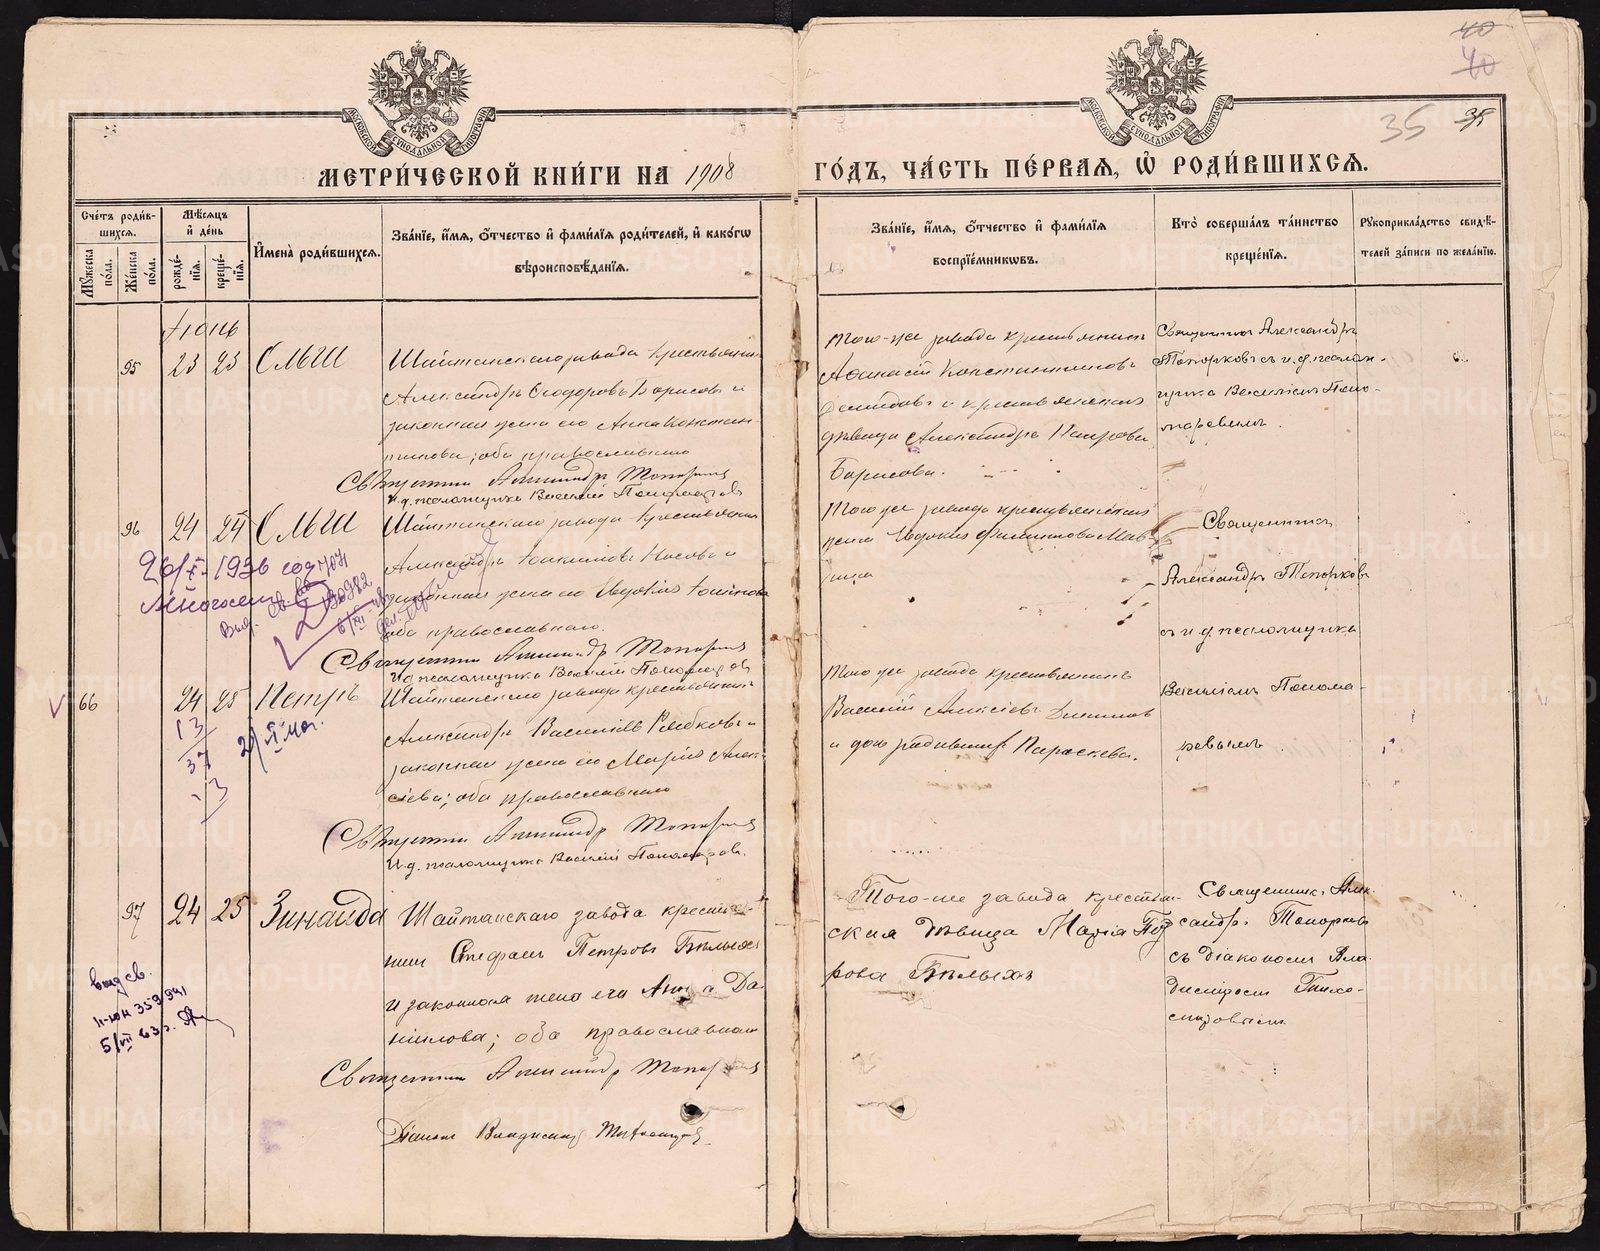 40
40
35 35
МОСКОВСКОЙ СѴНОДАЛЬНОЙ ТИПОГРАФІИ
МОСКОВСКОЙ СѴНОДАЛЬНОЙ ТИПОГРАФІИ
МЕТРИ́ЧЕСКОЙ КНИ́ГИ НА 1908
ГО́ДЪ, ЧА́СТЬ ПЕ́РВАЯ, Ѡ҆ РОДИ́ВШИХСЯ.
Сче́тъ роди́в-
шихся.
Мꙋжеска по́ла.
Же́нска по́ла.
Мѣ́сяцъ
и҆ де́нь
рожде́-
нїя.
креще́-
нїя.
И҆мена̀ роди́вшихся.
Зва́нїе, и҆́мя, ѻ҆́тчество и҆ фами́лїя роди́телей, и҆ како́гѡ
вѣроисповѣ́данїя.
Зва́нїе, и҆́мя, ѻ҆́тчество и҆ фами́лїя
воспрїе́мникѡвъ.
Кто̀ соверша́лъ та́инство
креще́нїя.
Рꙋкоприкла́дство свидѣ́-
телей за́писи по жела́нїю.
Іюнь
95 23 23 Ольга
Шайтанскаго завода крестьянин
Александръ Ѳеодоровъ Борисовъ и
законная жена его Анна Констан-
тинова; оба православнаго
Священникъ Александръ Топорковъ
И.д. псаломщика Василій Пономаревъ
Того-же завода крестьянинъ
Аѳанасій Константиновъ
Демидовъ и крестьянская
дѣвица Александра
Борисова.
Священникъ Александръ
Топорковъ съ и.д. псалом-
щика Василіемъ Поно-
маревымъ.
96 24 24 Ольга
Шайтанскаго завода крестьянинъ
Александръ Носовъ и
законная жена его Евдокія
оба православнаго.
Священникъ Александръ Топорковъ
И.д. псаломщика Василій Пономаревъ
26/X-1936
Выд. св-во
Того же завода крестьянская
жена Евдокія Филиппова
Священникъ
Александръ Топорковъ
съ и.д. псаломщика
Василіемъ Понома-
ревымъ
V 66 24 25 Петръ
13
37
13
Шайтанскаго завода крестьянинъ
Александръ Василіевъ Рябковъ и
законная жена его Марія Алек-
сіева; оба православнаго
Священникъ Александръ Топорковъ
И.д. псаломщика Василій Пономаревъ.
Того же завода крестьянинъ
Василій Алексіевъ
и дочь Параскева.
97 24 25 Зинаида
Шайтанскаго завода крестья-
нинъ Стефанъ Петровъ Бѣлыхъ
и законная жена его Анна Да-
ніилова; оба православнаго
Священникъ Александръ Топорковъ
Діаконъ Владиміръ Тихомировъ
выд св.
II-юн 359941
5/VII 63 г.
Того-же завода крестьян-
ская дѣвица Марія
Бѣлыхъ
Священникъ Алек-
сандръ Топорковъ
съ діакономъ Вла-
диміромъ Тихо-
мировымъ
METRIKI.GASO-URAL.RU